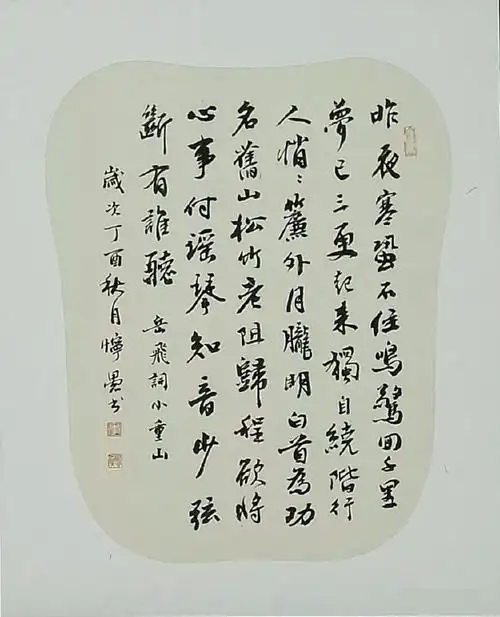 昨夜寒蛩不住鳴驚回千里
夢已三更起来獨自繞階行
人悄々簾外月朧明白首為功
名舊山松竹老阻歸程欲將
心事付瑶琴知音少弦
斷有誰聽 岳飛詞小重山
歲次丁酉秋月
书